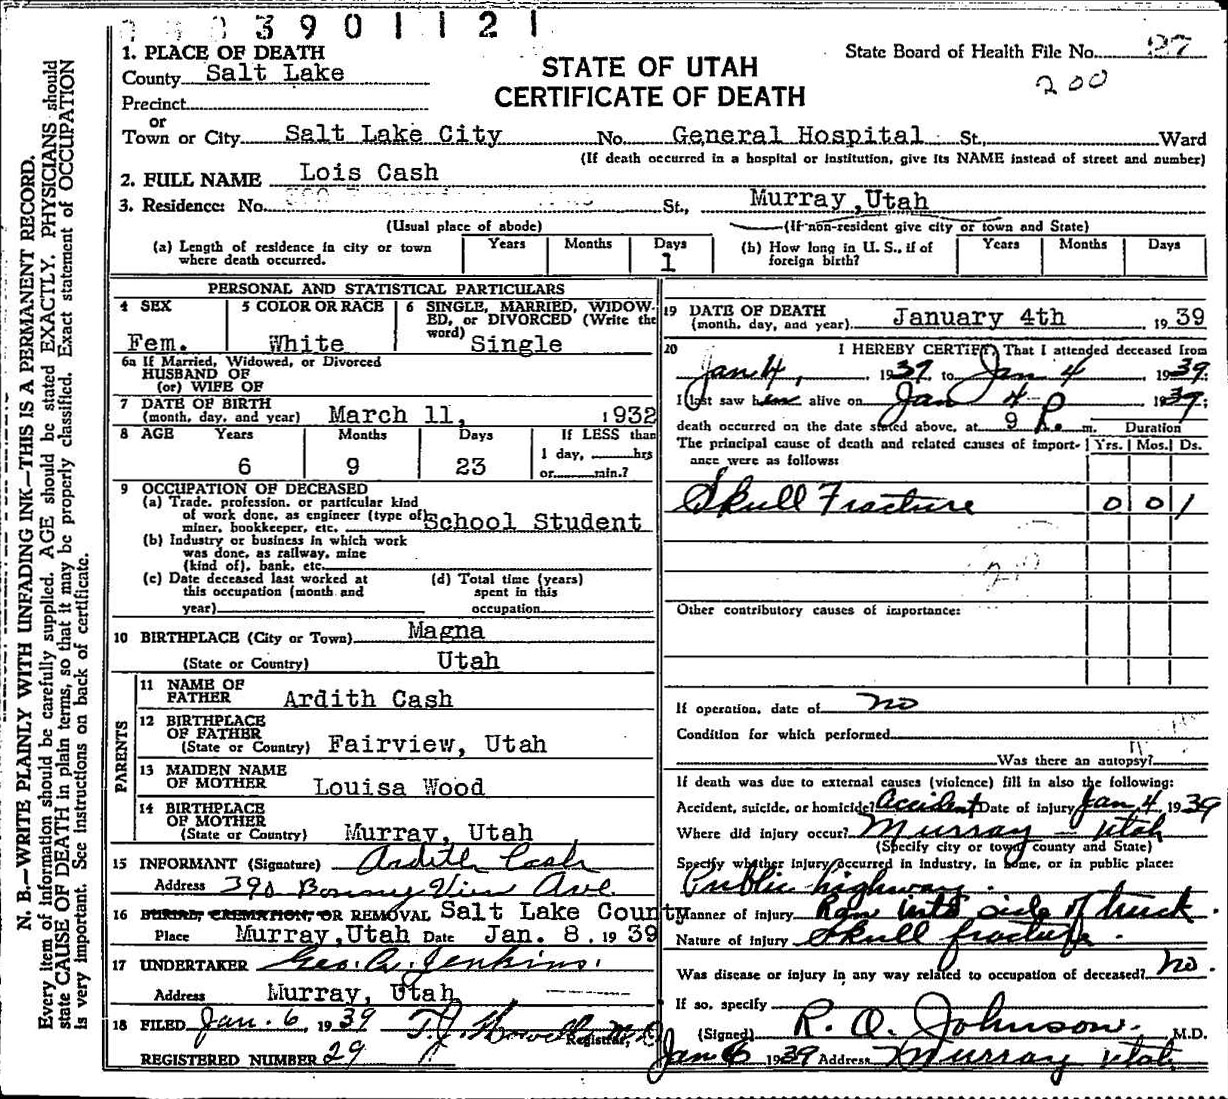 3 9 0 1 1 2 1
1. PLACE OF DEATH
County Salt Lake
Precinct
or
Town or City Salt Lake City No. General Hospital St., Ward
STATE OF UTAH
CERTIFICATE OF DEATH
State Board of Health File No. 27
200
(If death occurred in a hospital or institution, give its NAME instead of street and number)
2. FULL NAME Lois Cash
3. Residence: No. St., Murray, Utah
(Usual place of abode) (If non-resident give city or town and State)
(a) Length of residence in city or town where death occurred. Years Months Days 1
(b) How long in U. S., if of foreign birth? Years Months Days
PERSONAL AND STATISTICAL PARTICULARS
4 SEX Fem.
5 COLOR OR RACE White
6 SINGLE, MARRIED, WIDOWED, or DIVORCED (Write the word) Single
6a If Married, Widowed, or Divorced
HUSBAND OF
(or) WIFE OF
7 DATE OF BIRTH
(month, day, and year) March 11, 1932
8 AGE Years Months Days If LESS than
1 day, hrs
6 9 23 or min.?
9 OCCUPATION OF DECEASED
(a) Trade, profession, or particular kind
of work done, as engineer (type of)
miner, bookkeeper, etc. School Student
(b) Industry or business in which work
was done, as railway, mine
(kind of), bank, etc.
(c) Date deceased last worked at
this occupation (month and
year)
(d) Total time (years)
spent in this
occupation
10 BIRTHPLACE (City or Town) Magna
(State or Country) Utah
PARENTS
11 NAME OF
FATHER Ardith Cash
12 BIRTHPLACE
OF FATHER
(State or Country) Fairview, Utah
13 MAIDEN NAME
OF MOTHER Louisa Wood
14 BIRTHPLACE
OF MOTHER
(State or Country) Murray, Utah
15 INFORMANT (Signature) Ardith Cash
Address 390 Bonny View Ave
16 BURIAL, CREMATION, OR REMOVAL Salt Lake County
Place Murray, Utah Date Jan. 8, 1939
17 UNDERTAKER Geo. A. Jenkins.
Address Murray, Utah
18 FILED Jan. 6, 1939 T. J. Howells M.D.
Registrar,
REGISTERED NUMBER 29
19 DATE OF DEATH
(month, day, and year) January 4th 1939
20 I HEREBY CERTIFY, That I attended deceased from
Jan 4, 1939, to Jan 4 1939.
I last saw her alive on Jan 4 1939;
death occurred on the date stated above, at 9 P. m. Duration
The principal cause of death and related causes of importance were as follows: Yrs. Mos. Ds.
Skull Fracture 0 0 1
Other contributory causes of importance:
If operation, date of no
Condition for which performed
Was there an autopsy?
If death was due to external causes (violence) fill in also the following:
Accident, suicide, or homicide? Accident Date of injury Jan 4, 1939
Where did injury occur? Murray - Utah
(Specify city or town, county and State)
Specify whether injury occurred in industry, in home, or in public place:
Public highway.
Manner of injury Ran into side of truck.
Nature of injury Skull fracture.
Was disease or injury in any way related to occupation of deceased? no.
If so, specify
(Signed) R. O. Johnson. M.D.
Jan 6 1939 Address Murray Utah.
N. B.—WRITE PLAINLY WITH UNFADING INK—THIS IS A PERMANENT RECORD.
Every item of information should be carefully supplied. AGE should be stated EXACTLY. PHYSICIANS should
state CAUSE OF DEATH in plain terms, so that it may be properly classified. Exact statement of OCCUPATION
is very important. See instructions on back of certificate.